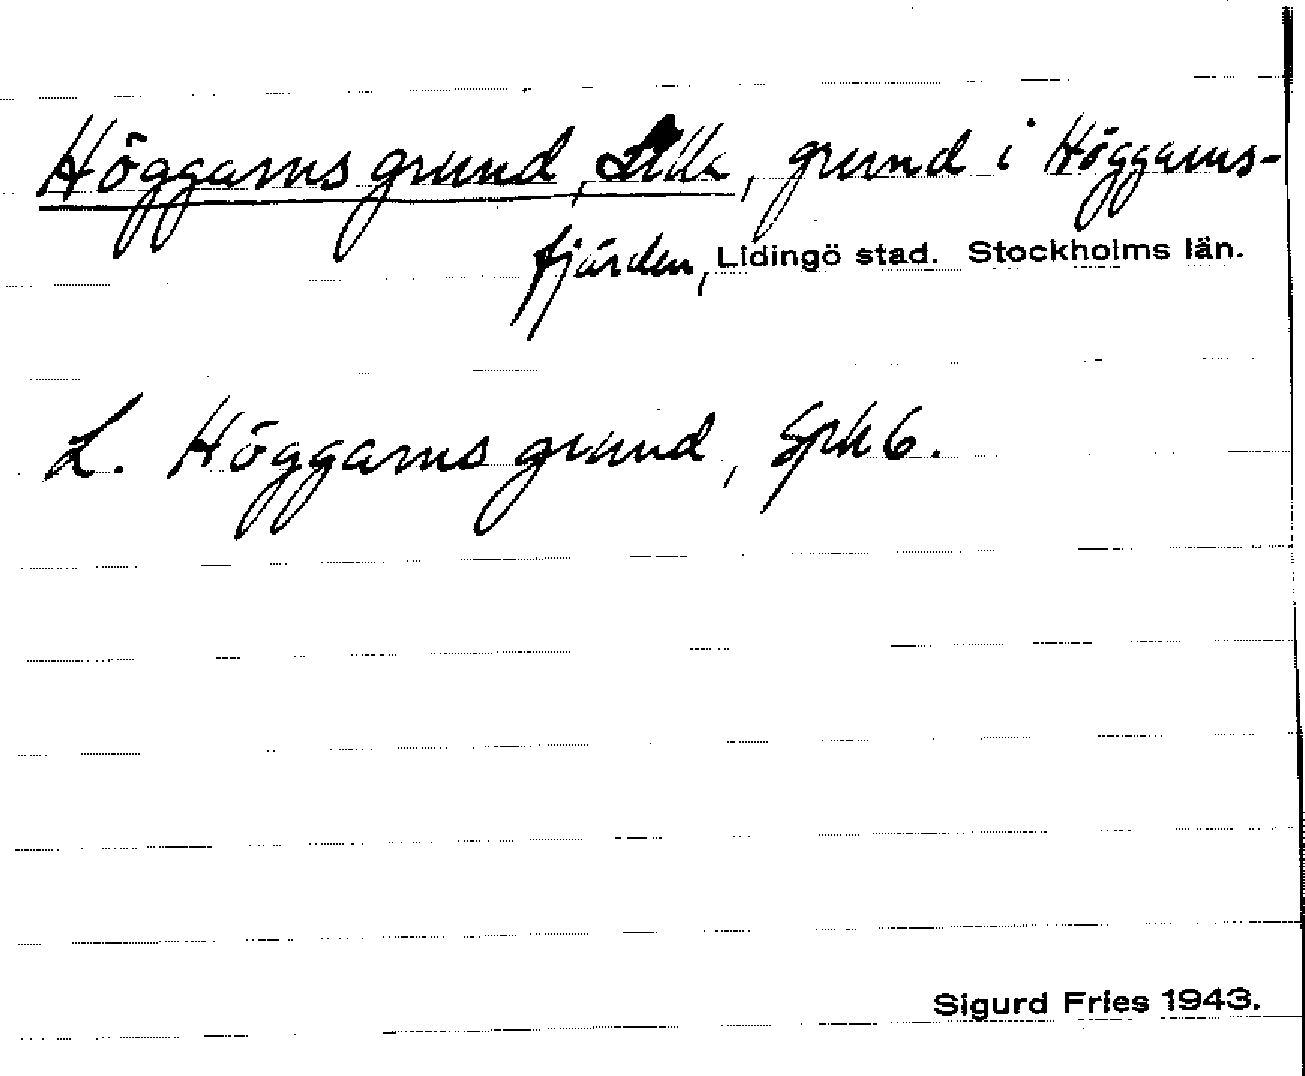 Höggarns grund, Lilla, grund i Höggarns-
fjärden, Lidingö stad. Stockholms län.
L. Höggarns grund, Spk 6.
Sigurd Fries 1943.